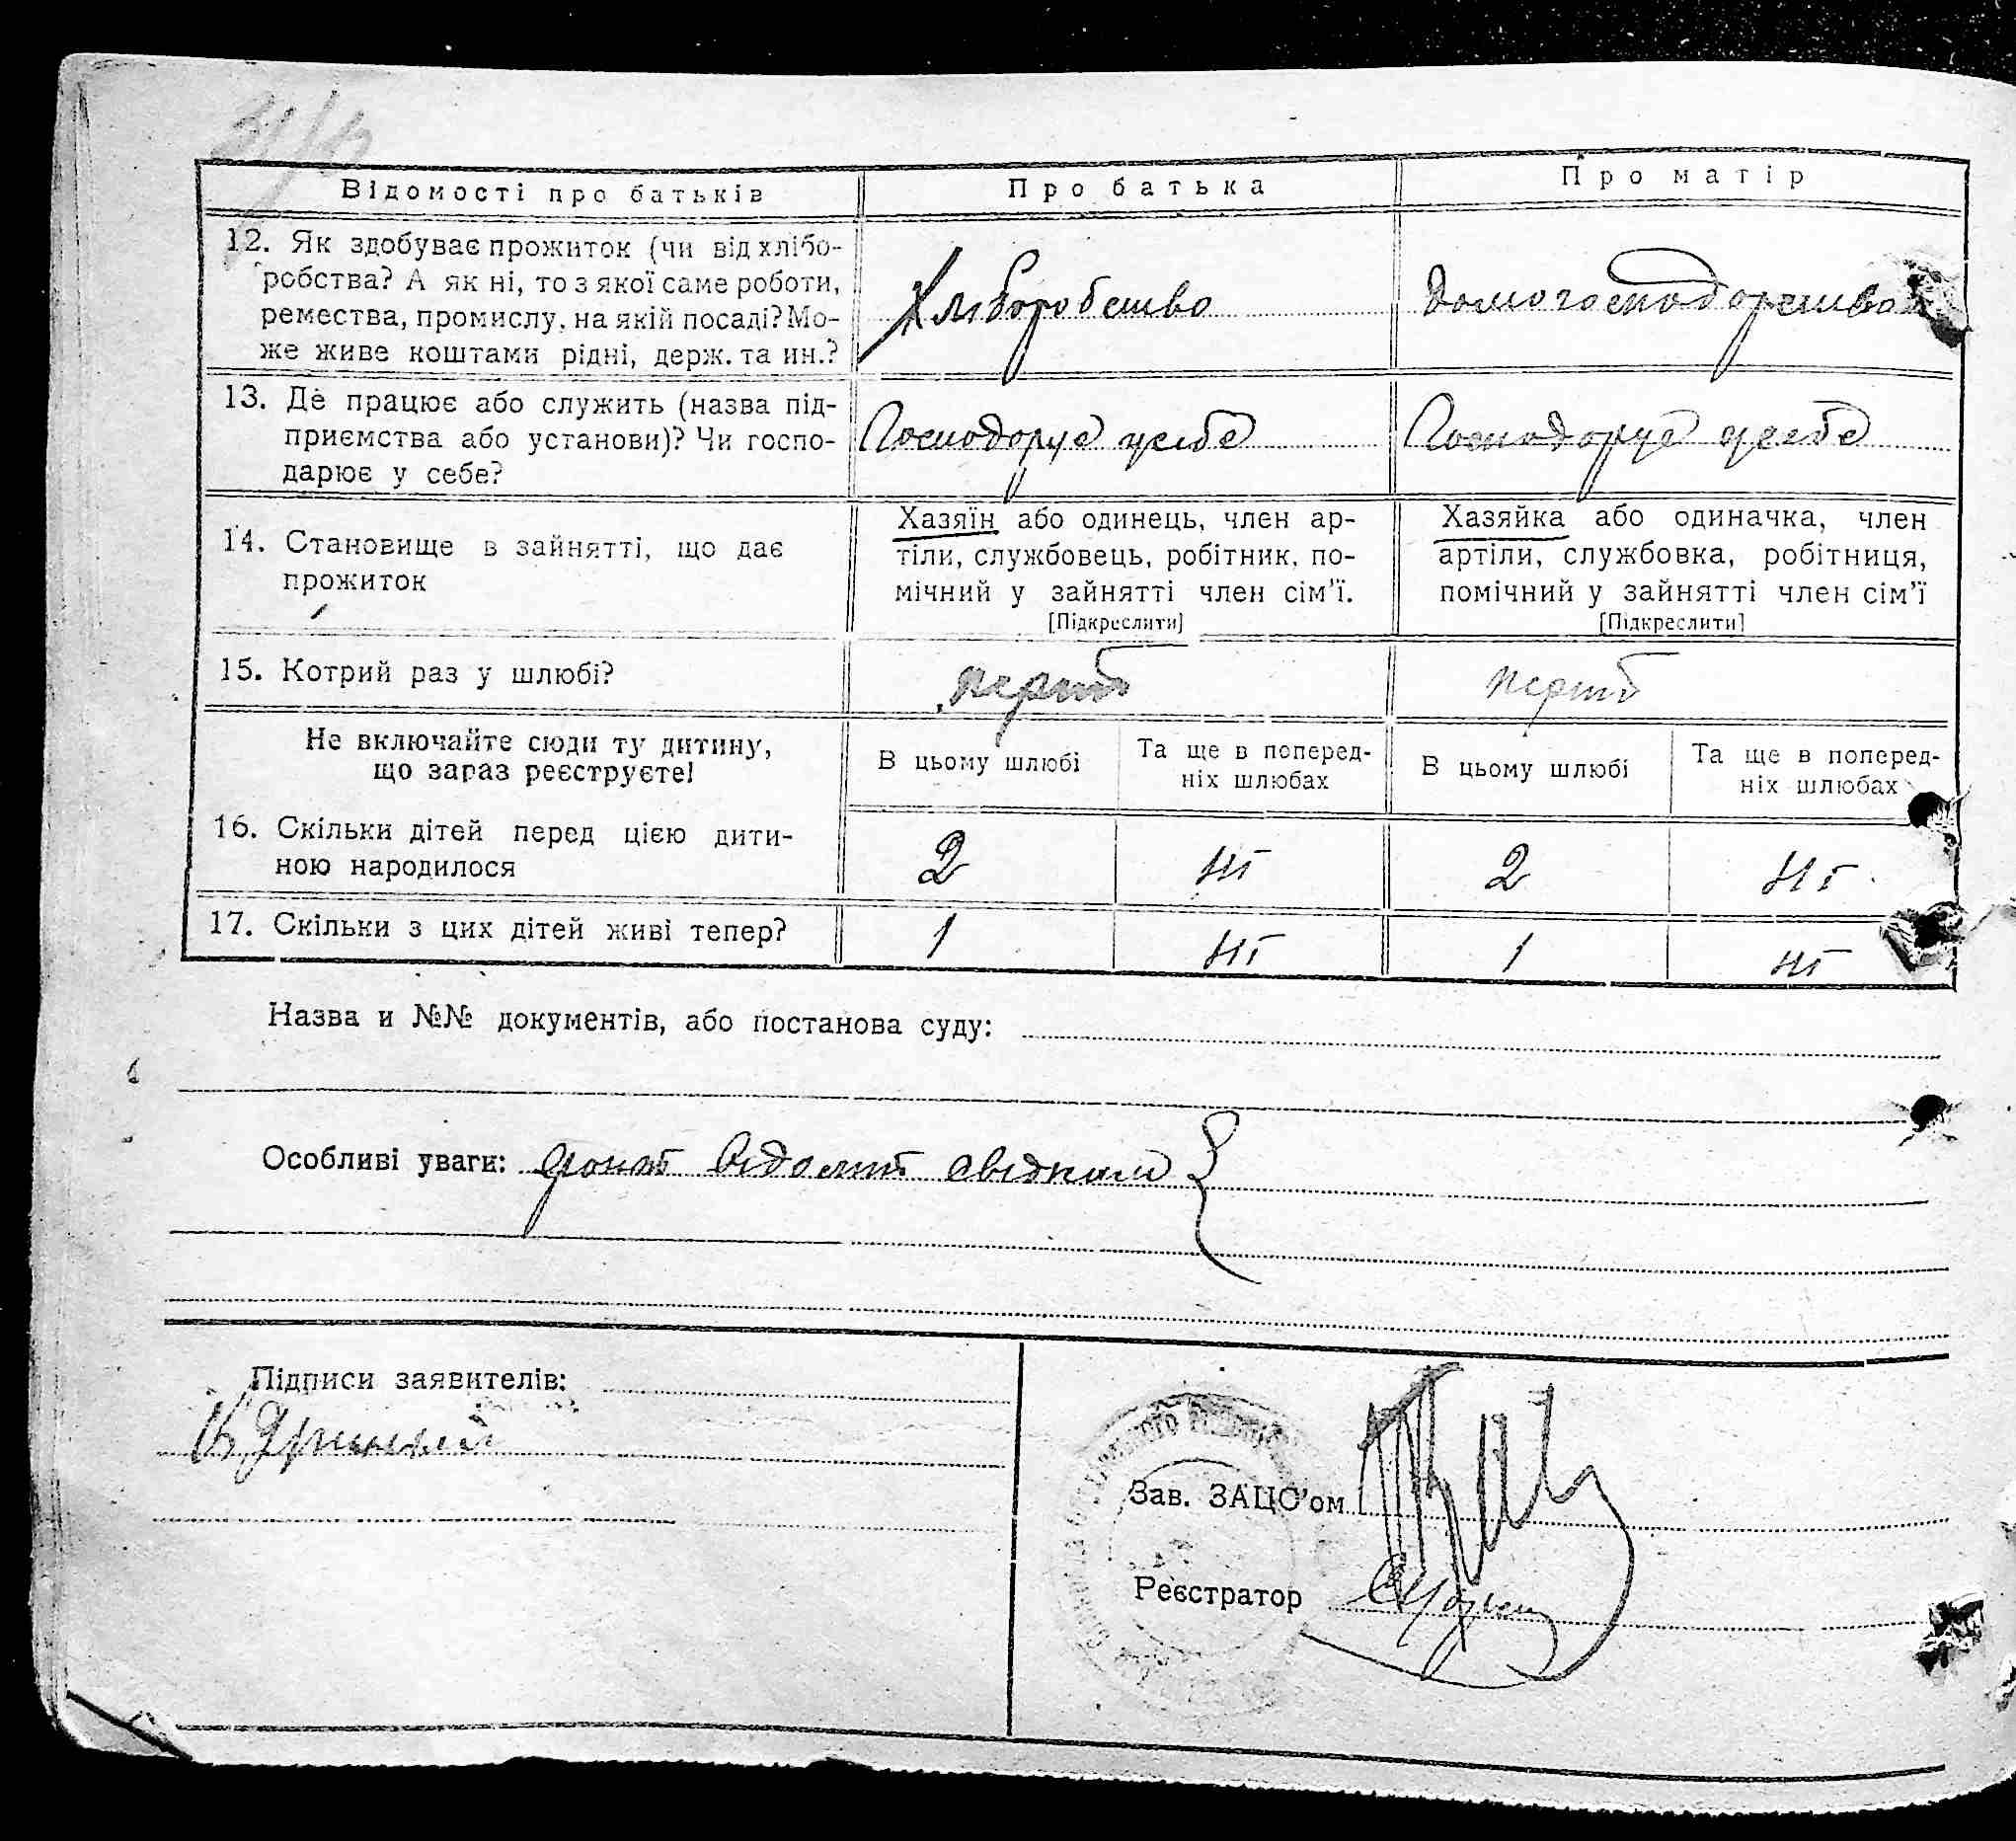 Відомості про батьків
Про батька
Про матір
12. Як здобуває прожиток (чи від хлібо-
робства? А як ні, то з якої саме роботи,
ремества, промислу, на якій посаді? Мо-
же живе коштами рідні, держ. та ин.?
Хліборобство
домогосподарство
13. Де працює або служить (назва під-
приємства або установи)? Чи госпо-
дарює у себе?
Господорує у себе
Господорує у себе
14. Становище в зайнятті, що дає
прожиток
Хазяїн або одинець, член ар-
тіли, службовець, робітник, по-
мічний у зайнятті член сім'ї.
[Підкреслити]
Хазяйка або одиначка, член
артіли, службовка, робітниця,
помічний у зайнятті член сім'ї
[Підкреслити]
15. Котрий раз у шлюбі?
перший
перший
Не включайте сюди ту дитину,
що зараз реєструєте!
В цьому шлюбі
Та ще в поперед-
ніх шлюбах
В цьому шлюбі
Та ще в поперед-
ніх шлюбах
16. Скільки дітей перед цією дити-
ною народилося
2 ні 2 ні
17. Скільки з цих дітей живі тепер?
1 ні 1 ні
Назва и №№ документів, або постанова суду:
Особливі уваги:
Підписи заявителів:
Зав. ЗАЦС'ом
Реєстратор